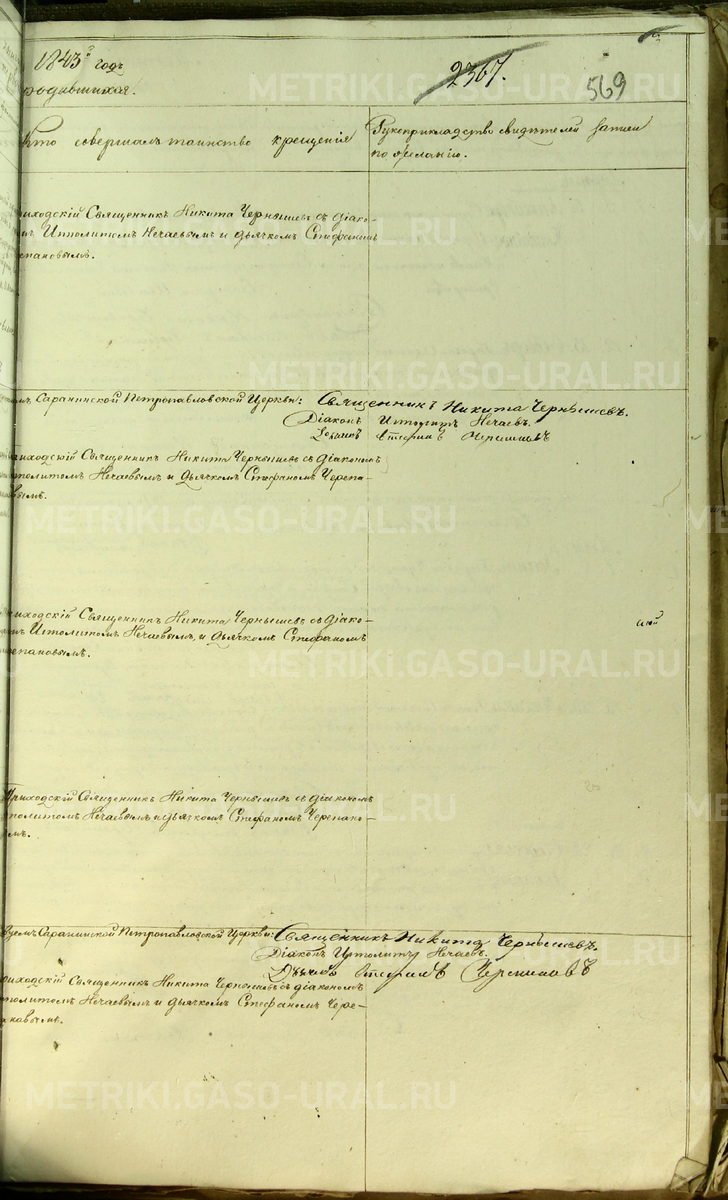 1843 годъ
2367.
569
родившихся.
Кто совершалъ таинство крещенія
Рукоприкладство свидѣтелей записи
по желанію.
Приходскій Священникъ Никита Чернышевъ съ діако-
Ипполитомъ Нечаевымъ и дьячкомъ Стефаномъ
Черепановымъ.
Саранинской Петропавловской Церкви: Священникъ Никита Чернышевъ.
Діаконъ Ипполитъ Нечаевъ.
Приходскій Священникъ Никита Чернышевъ съ діакономъ
Ипполитомъ Нечаевымъ и дьячкомъ Стефаномъ Черепа-
новымъ.
Приходскій Священникъ Никита Чернышевъ съ діако-
номъ Ипполитомъ Нечаевымъ, и дьячкомъ Стефаномъ
Черепановымъ.
Приходскій Священникъ Никита Чернышевъ съ діакономъ
Ипполитомъ Нечаевымъ и дьячкомъ Стефаномъ Черепано-
вымъ.
Саранинской Петропавловской Церкви: Священникъ Никита Чернышевъ.
Діаконъ Ипполитъ Нечаевъ.
Приходскій Священникъ Никита Чернышевъ съ діакономъ
Ипполитомъ Нечаевымъ и дьячкомъ Стефаномъ Чере-
пановымъ.
METRIKI.GASO-URAL.RU